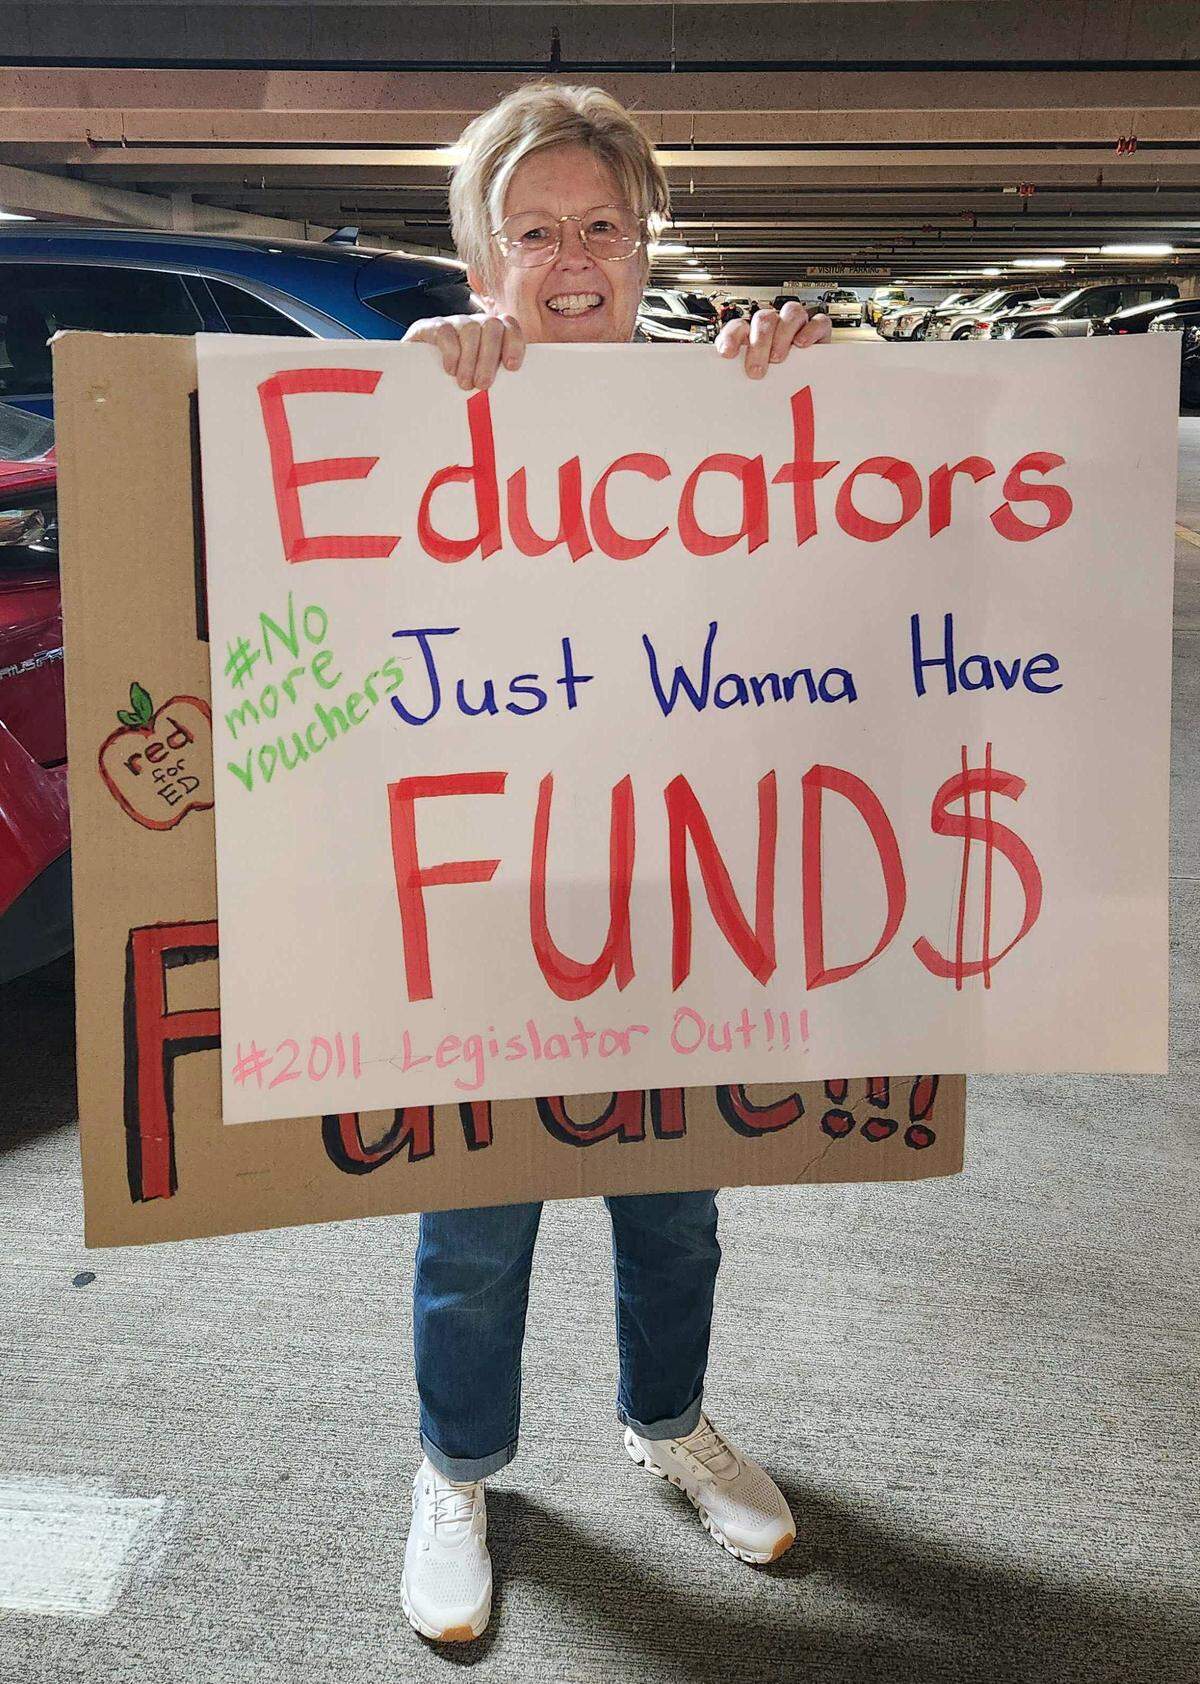 VISITOR PARKING
TWO WAY TRAFFIC
Educators
#No
more
vouchers
Just Wanna Have
FUND$
#2011 Legislator Out!!!
red
for
ED
F
uture!!!